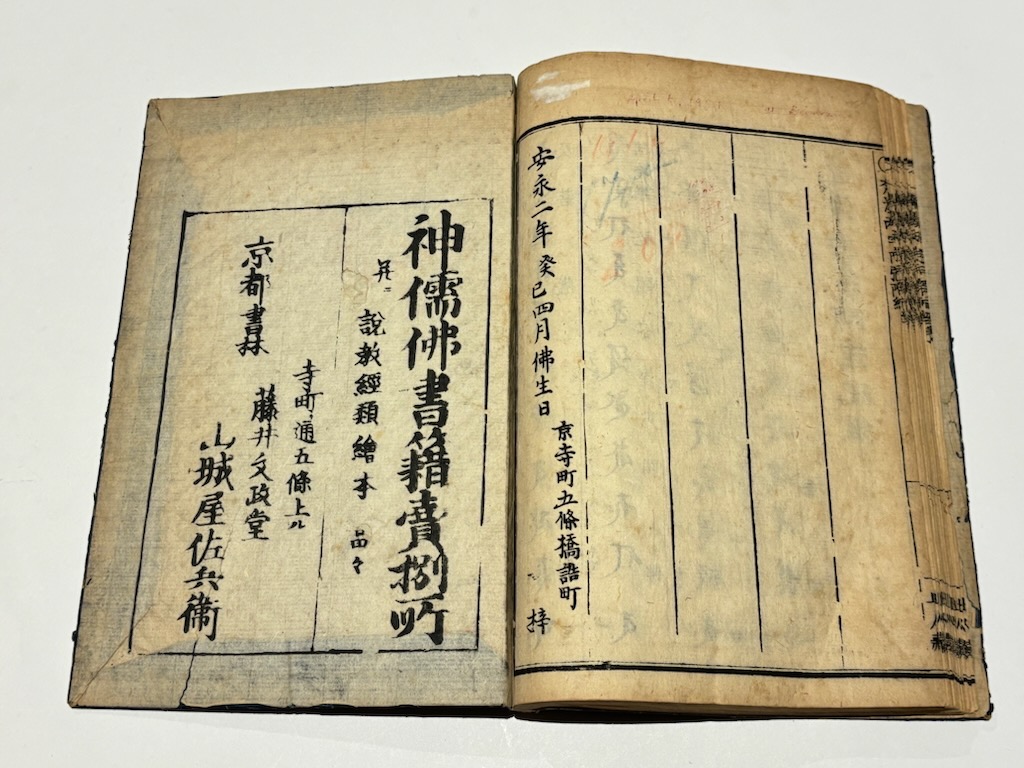 安永二年癸巳四月佛生日
京寺町五條橋詰町
梓
神儒佛書籍賣捌所
并ニ説教經類繪本品々
寺町通五條上ル
京都書林 藤井文政堂
山城屋佐兵衛